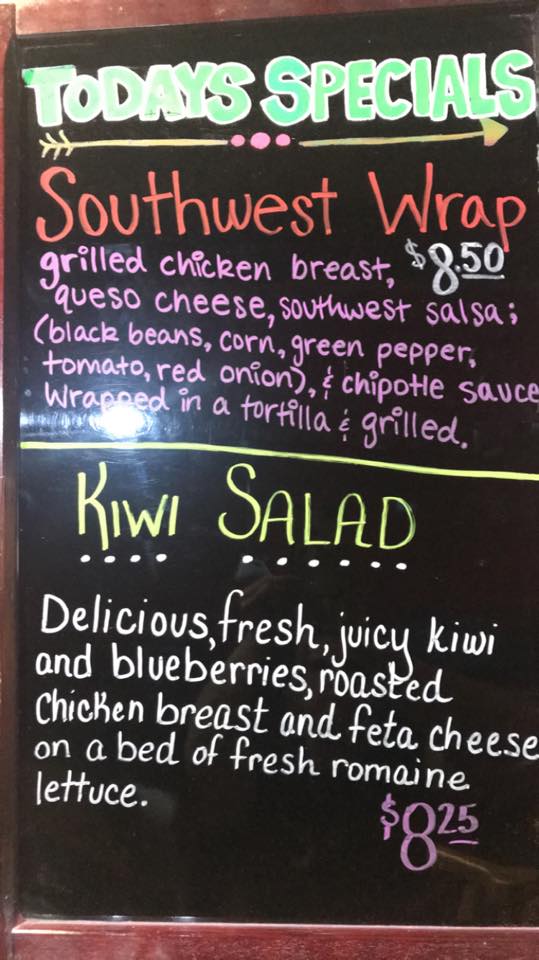 TODAYS SPECIALS
Southwest Wrap
grilled chicken breast, $8.50
queso cheese, southwest salsa;
(black beans, corn, green pepper,
tomato, red onion), & chipotle sauce
Wrapped in a tortilla & grilled.
KIWI SALAD
Delicious, fresh, juicy kiwi
and blueberries, roasted
chicken breast and feta cheese
on a bed of fresh romaine
lettuce.
$8.25